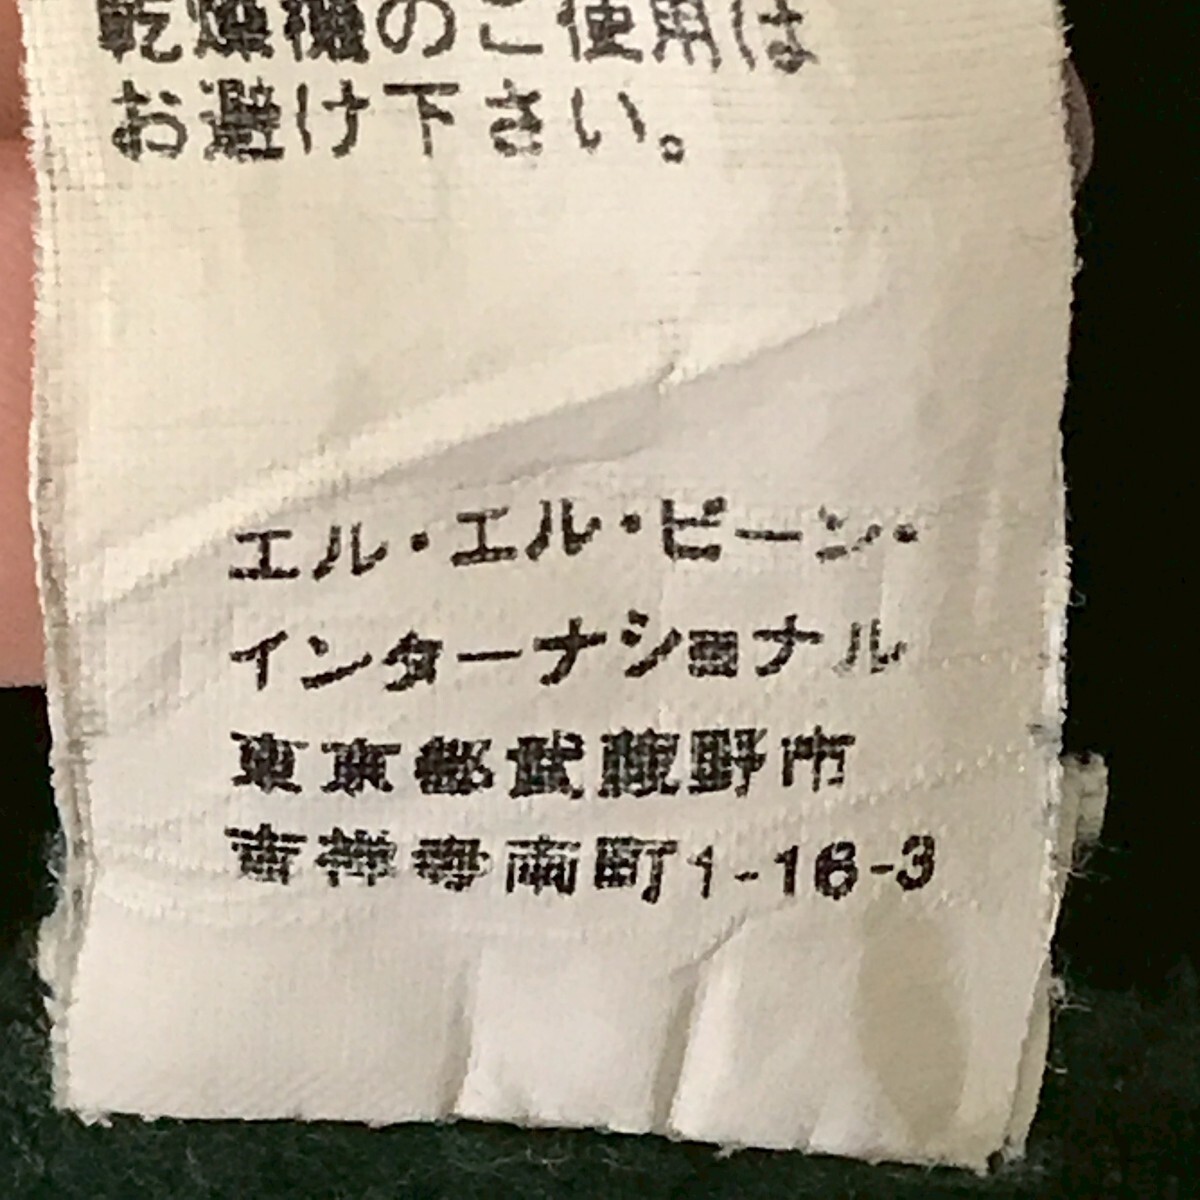 乾燥機のご使用は
お避け下さい。
エル・エル・ビーン・
インターナショナル
東京都武蔵野市
吉祥寺南町1-16-3